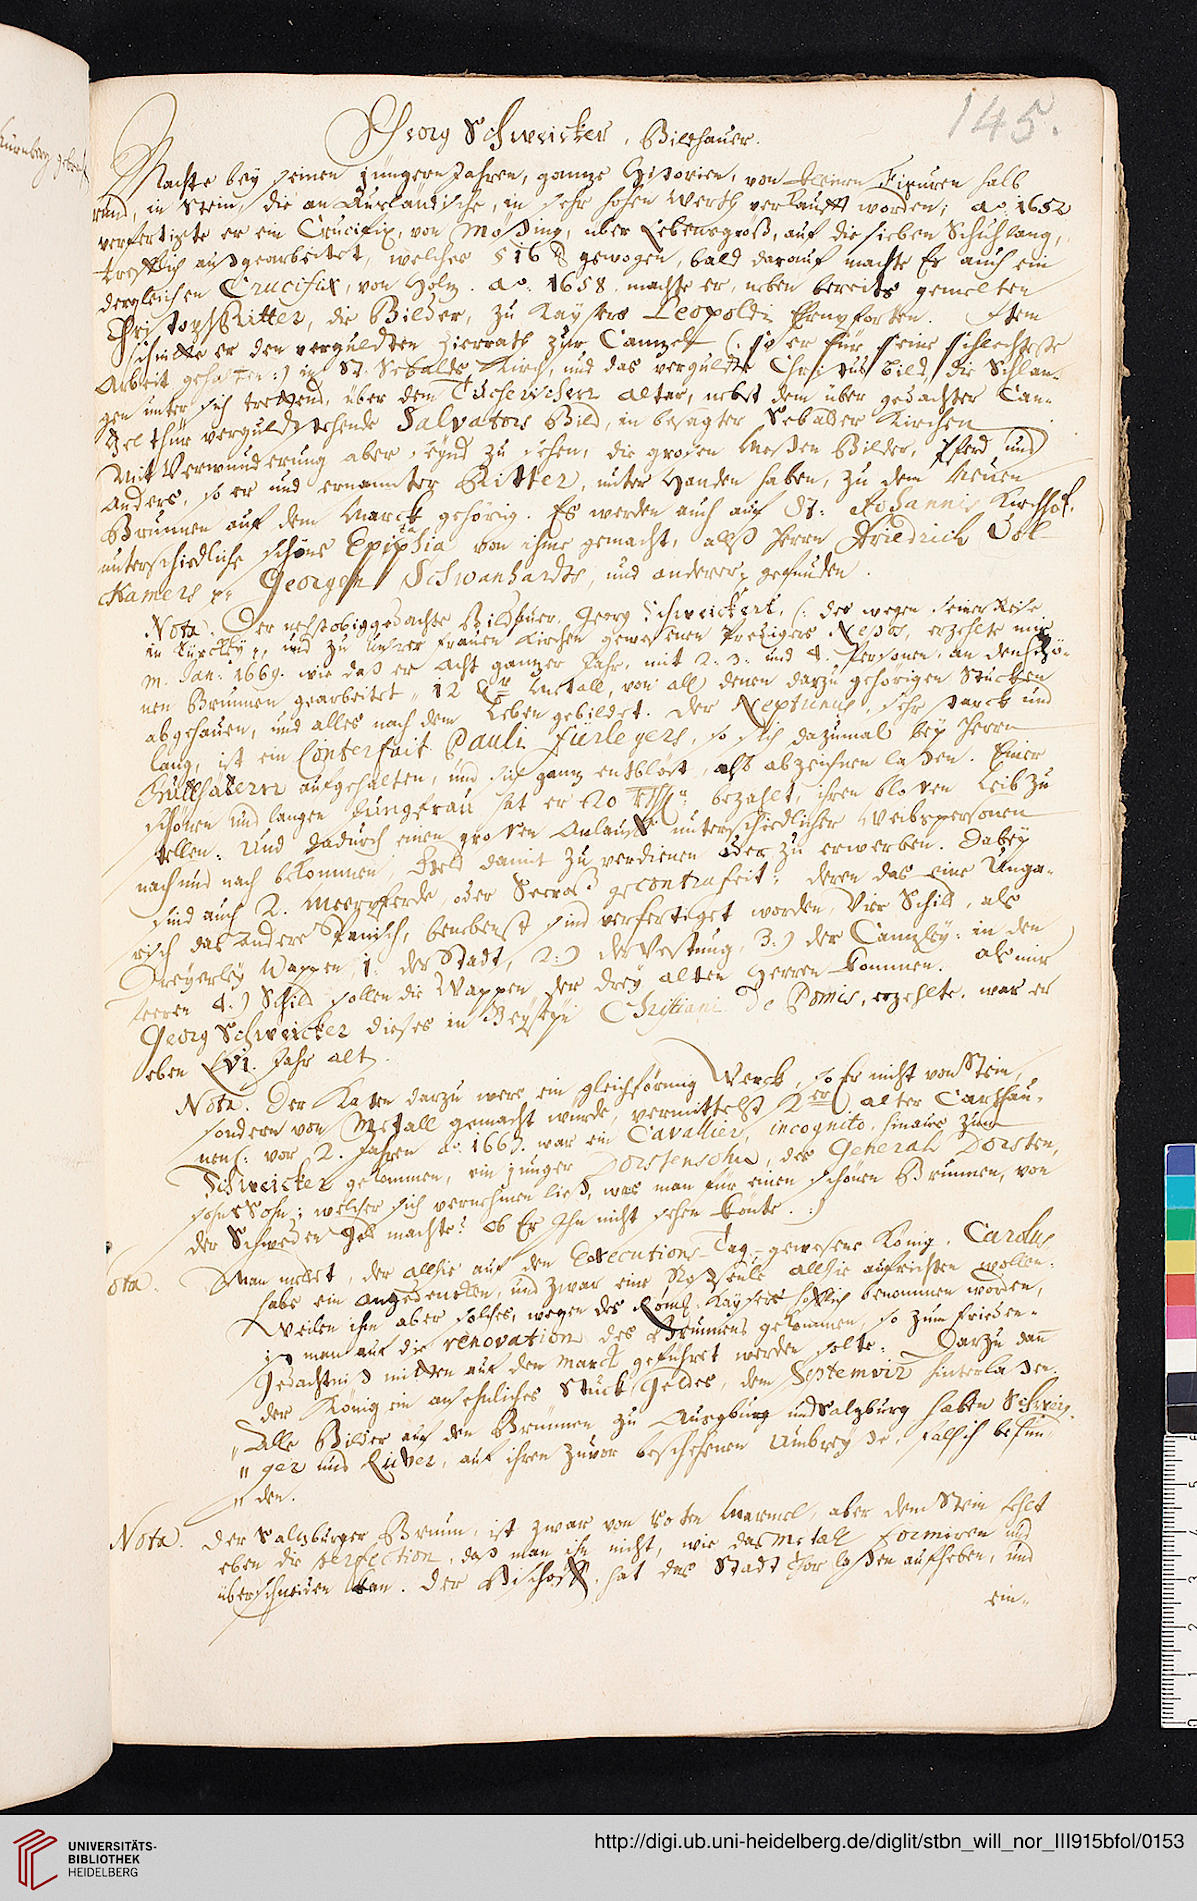 145.
Georg Schweicker, Bildhauer.
Machte bey seinen jüngern Jahren, gantze Historien, von kleinen Figuren halb
rund, in Stein, die an Ausländische, in sehr hohen Werth verkaufft worden; Ao. 1652
verfertigte er ein Crucifix, von Meßing, über Lebensgröß, auf die sieben Schuh lang,
trefflich außgearbeitet, welches 516 ℔ gewogen, bald darauf machte Er auch ein
dergleichen Crucifix, von Holtz. Ao. 1658. machte er, neben bereits gemelten
Christoph Ritter, die Bilder, zu Kaysers Leopoldi Ehrnpforten. Item
schnitte er den verguldten Zierrath zur Cantzel (: so er für seine schlechteste
Arbeit gehalten:) in St. Sebalds Kirch, und das verguldte Christus bild, die Schlan-
gen unter sich trettend, über dem Tucherischen Altar, nebst dem über gedachter Can-
zel thür verguld stehende Salvators Bild, in besagter Sebalder Kirchen
Mit Verwunderung aber seynd zu sehen, die großen Meßen Bilder, Pferd und
anders, so er und ernannter Ritter, unter Handen haben, zu dem Neuen
Brunnen auf dem Marck gehörig. Es werden auch auf St: Johannis Kirchhof,
unterschiedliche schöne Epitaphia von ihme gemacht, alß Herrn Friedrich Vol-
kamers p. Georgen Schwanhardts, und anderer gefunden.
Nota. Der nechstobiggedachte Bildhauer, Georg Schweickert, (: des wegen seiner Reise
in Türckey p, und zu Unsrer Frauen Kirchen gewesenen Predigers Nepos, erzehlte mir
m. Jan: 1669. wie daß er acht gantzer Jahr, mit 2. 3. und 4. Personen, an den schö-
nen Brunnen gearbeitet, 12 Metall, von all denen darzu gehörigen Stücken
abgehauen, und alles nach dem Leben gebildet. Der Neptunus, sehr starck und
lang, ist ein Conterfait Pauli Fürlegers, so sich dazumal bey Herrn
aufgehalten, und sich gantz entblöst, alß abzeichnen laßen. Einer
schönen und langen Jungfrau hat er 20 bezahlt, ihren bloßen Leib zu
stellen: Und dadurch einen großen Anlauff unterschiedlicher Weibspersonen
nach und nach bekommen, Geld damit zu verdienen oder zu erwerben. Dabey
sind auch 2. Meerpferde, oder Seeroß gecontrafeit: deren das eine Unga-
risch das andere Spanisch, benebenst sind verfertiget worden, Vier Schild, als
Dreyerley Wappen, 1. der Stadt, 2.) der Vestung, 3.) der Cantzley: in den
leeren 4.) Schild sollen die Wappen der drey alten Herren kommen. Als mir
Georg Schweicker dieses in Beyseyn Christiani De Pomis, erzehlte, war er
eben LVI. Jahr alt.
Nota. Der Kasten darzu were ein gleichförmig Werck, so Er nicht von Stein,
sondern von Metall gemacht wurde, vermittelst 2er alter Carthau-
nen (: vor 2. Jahren Ao. 1667. war ein Cavallier, incognito, hinaus zum
Schweicker gekommen, ein junger Dorstensohn, des General Dorsten,
sohns Sohn; welcher sich vernehmen ließ, was man für einen schönen Brunnen, von
der Schweden Geld machte? Ob Er Ihn nicht sehen könte. :)
ota. Man meldet, der allhie auf den Executions-Tag, gewesene König, Carolus
habe ein Angedencken, und zwar eine allhie aufrichten wollen.
Weilen ihm aber solches, wegen des Röm: Kaysers höfflich benommen worden,
ist man auf die renovation des Brunnens gekommen, so zum Frieden-
Gedächtniß mitten auf den Marck geführet werden solte. Darzu dan
der König ein ansehnliches Stück Geldes, dem Septemvir hinterlaßen.
„ Alle Bilder auf den Brunnen zu Augsburg und Saltzburg hatten Schwei-
„ ger und Ritter, auf ihren zuvor beschehenen Umbrey se, falsch befun-
„ den.
Nota. Der Saltzburger Brunn, ist zwar von Roten Marmel, aber dem Stein fehlt
eben die perfection, daß man ihn nicht, wie das Metall formiren und
überschneiden kan. Der Bischoff hat das Stadt Thor laßen aufheben, und
ein-
UNIVERSITÄTS-
BIBLIOTHEK
HEIDELBERG
http://digi.ub.uni-heidelberg.de/diglit/stbn_will_nor_III915bfol/0153